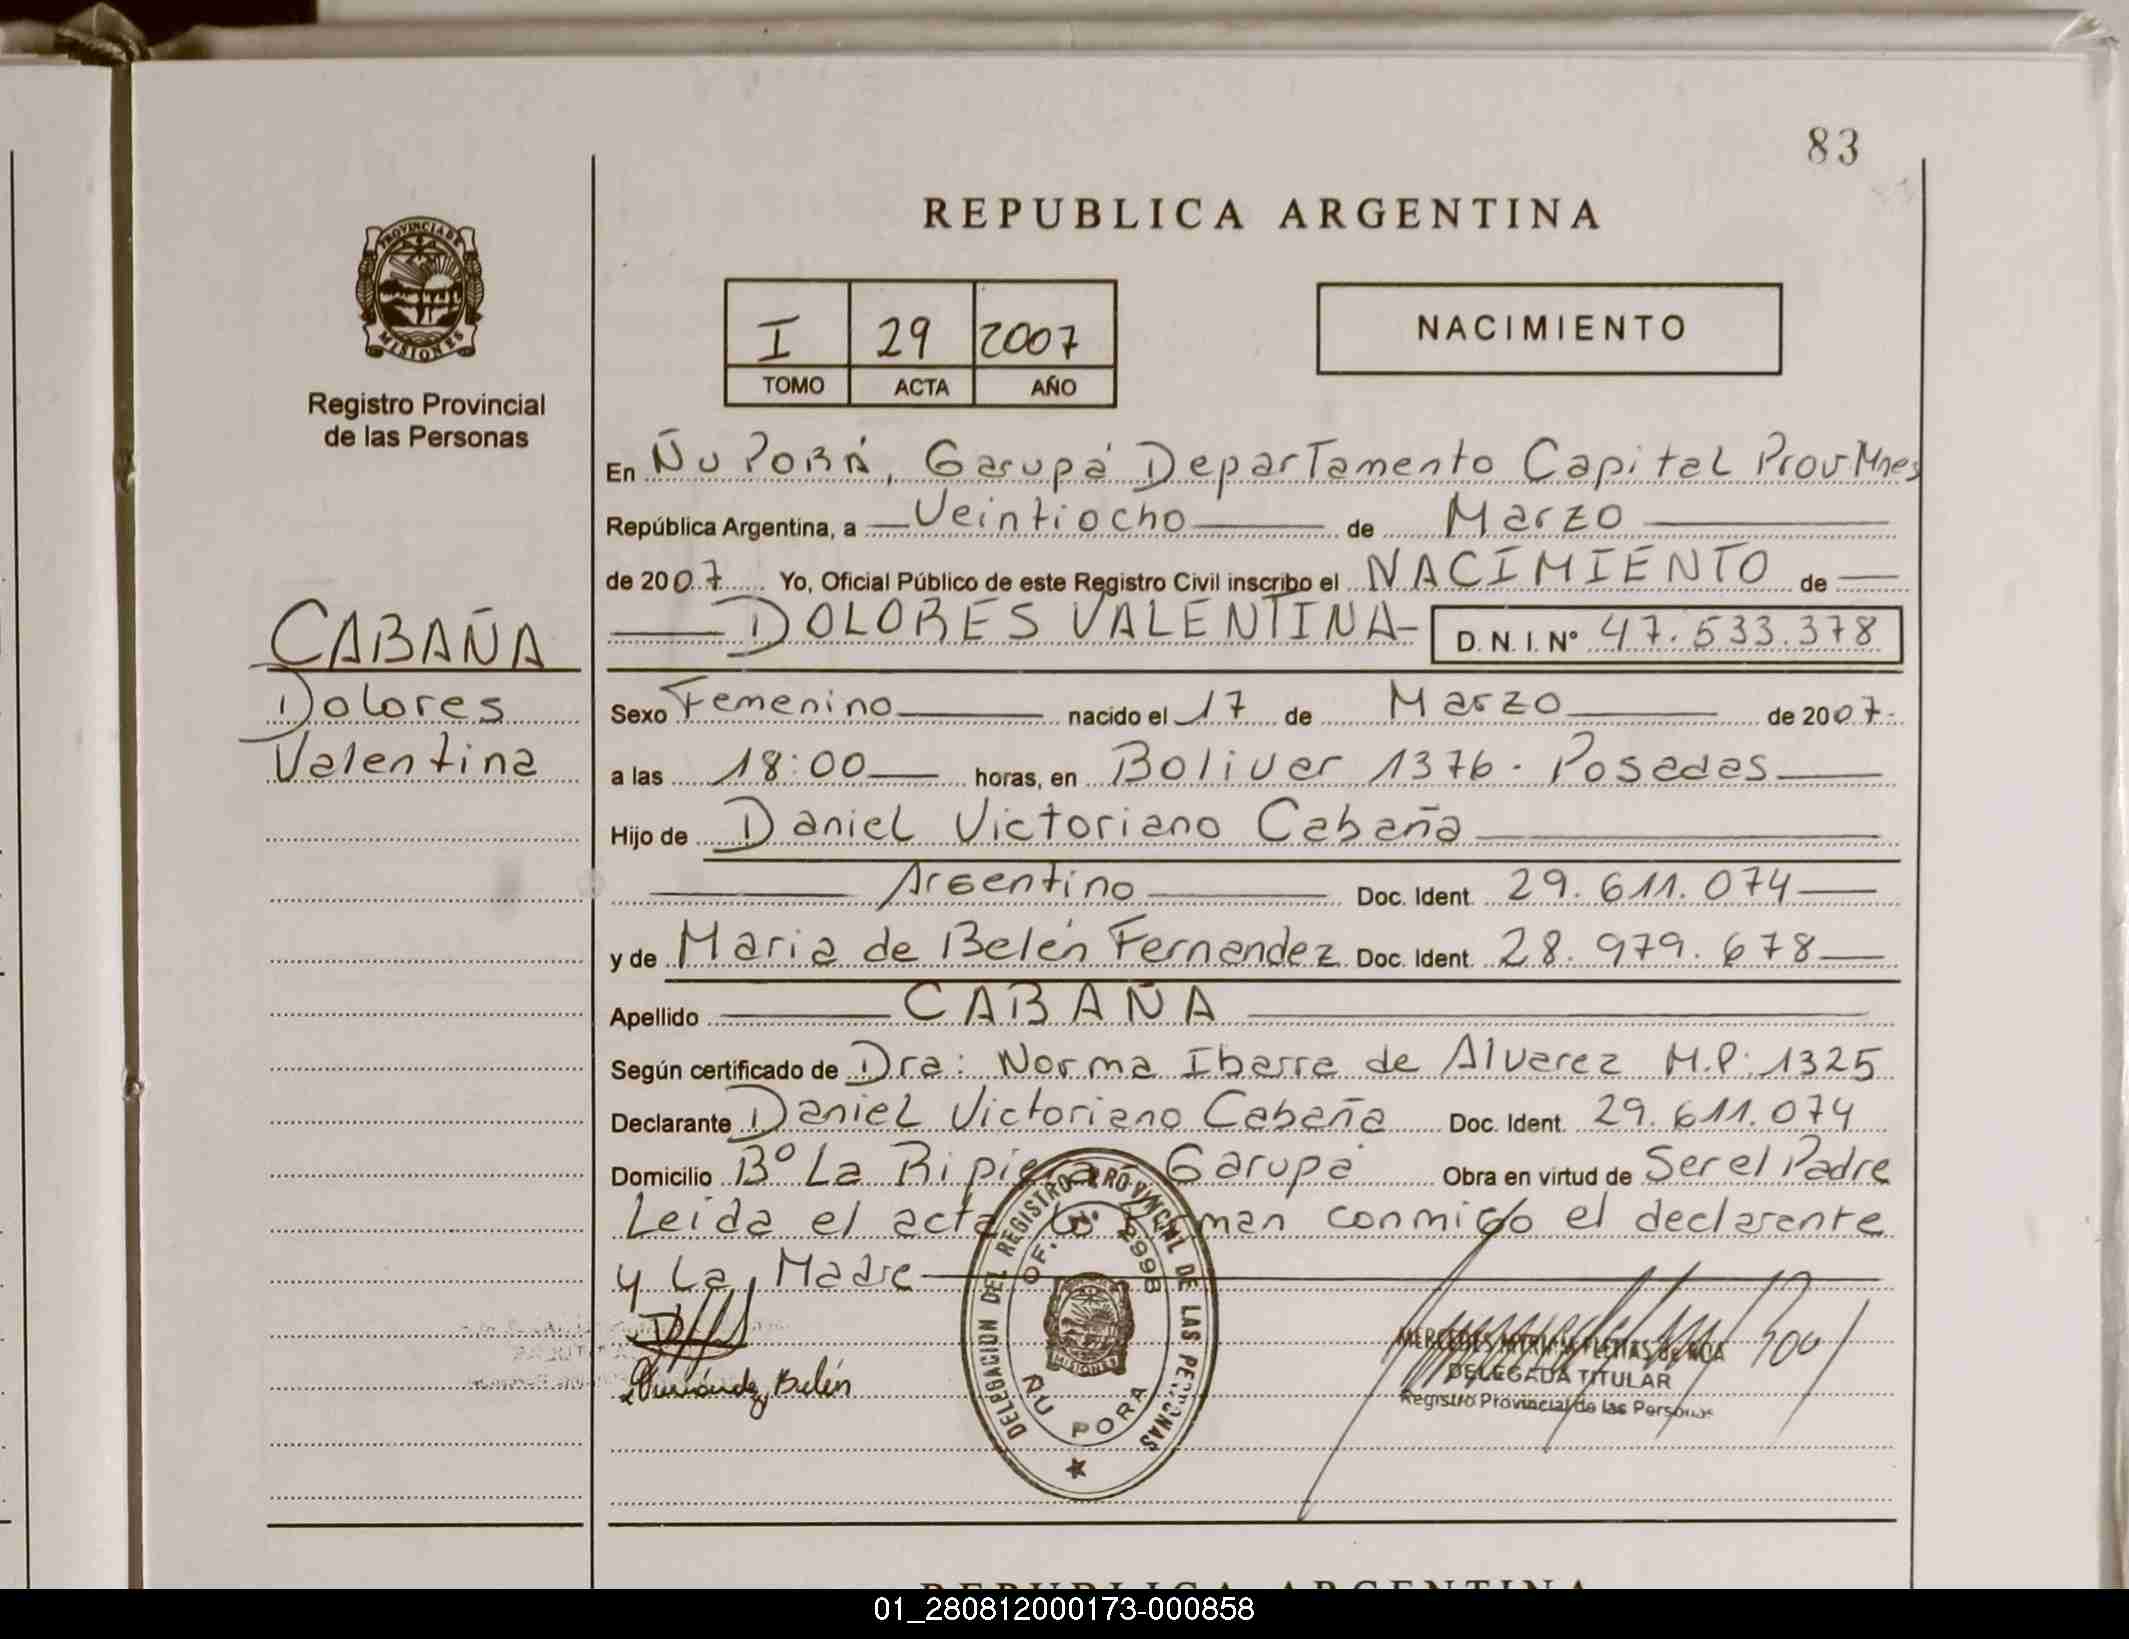 83
REPUBLICA ARGENTINA
PROVINCIA DE
MISIONES
Registro Provincial
de las Personas
I 29 2007
TOMO ACTA AÑO
NACIMIENTO
En Ñu PoRÁ, Garupá Departamento Capital Prov Mnes
República Argentina, a Veintiocho de Marzo
de 2007 Yo, Oficial Público de este Registro Civil inscribo el NACIMIENTO de
DOLORES VALENTINA D. N. I. Nº 47.533.378
CABAÑA
Dolores
Valentina
Sexo Femenino nacido el 17 de Marzo de 2007.
a las 18:00 horas, en Bolivar 1376. Posadas
Hijo de Daniel Victoriano Cabaña
Argentino Doc. Ident. 29.611.074
y de Maria de Belén Fernandez Doc. Ident. 28.979.678
Apellido CABAÑA
Según certificado de Dra: Norma Ibarra de Alvarez M.P: 1325
Declarante Daniel Victoriano Cabaña Doc. Ident. 29.611.074
Domicilio Bº La Ripiera Garupá Obra en virtud de Ser el Padre
Leída el acta la Firman conmigo el declarante
y La Madre
DELEGACION DEL REGISTRO PROVINCIAL DE LAS PERSONAS
OF. Nº 2998
MISIONES
ÑU PORA
Fernández Belén
DELEGADA TITULAR
Registro Provincial de las Personas
REPUBLICA ARGENTINA
01_280812000173-000858